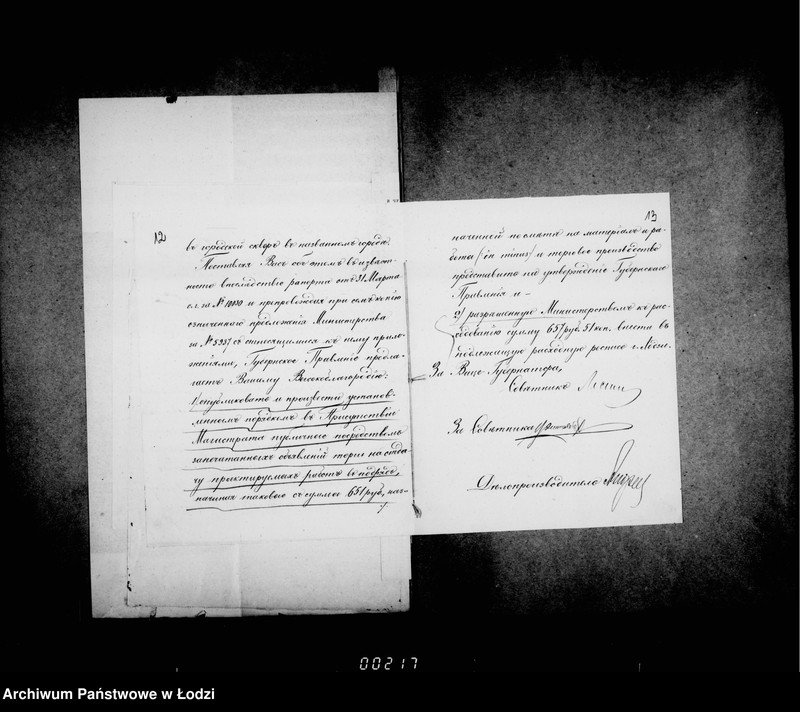 12
въ городской скверъ въ названномъ городѣ.
Поставляя Васъ объ этомъ въ извѣст-
ность вслѣдствіе рапорта отъ 31 Марта
с.г. за № и препровождая при семъ копію
означеннаго предложенія Министерства
за № 5357 съ относящимися къ нему прило-
женіями, Губернское Правленіе предла-
гаетъ Вашему Высокоблагородію:
1) опубликовать и произвести установ-
леннымъ порядкомъ въ Присутствіи
Магистрата публичного посредствомъ
запечатанныхъ объявленій торги на отда-
чу проектируемыхъ работъ въ подрядъ,
начиная таковые съ суммы 651 руб, наз-
13
наченной по смѣтѣ на матеріалъ и ра-
боты (in minus) и торговое производство
представить на утвержденіе Губернскаго
Правленія и -
2) разрѣшенную Министерствомъ къ рас-
ходованію сумму 651 руб. 51 коп. внести въ
подлежащую расходную роспись г. Лодзи.
За Вице-Губернатора,
Совѣтникъ
За Совѣтника
Дѣлопроизводитель
00217
Archiwum Państwowe w Łodzi